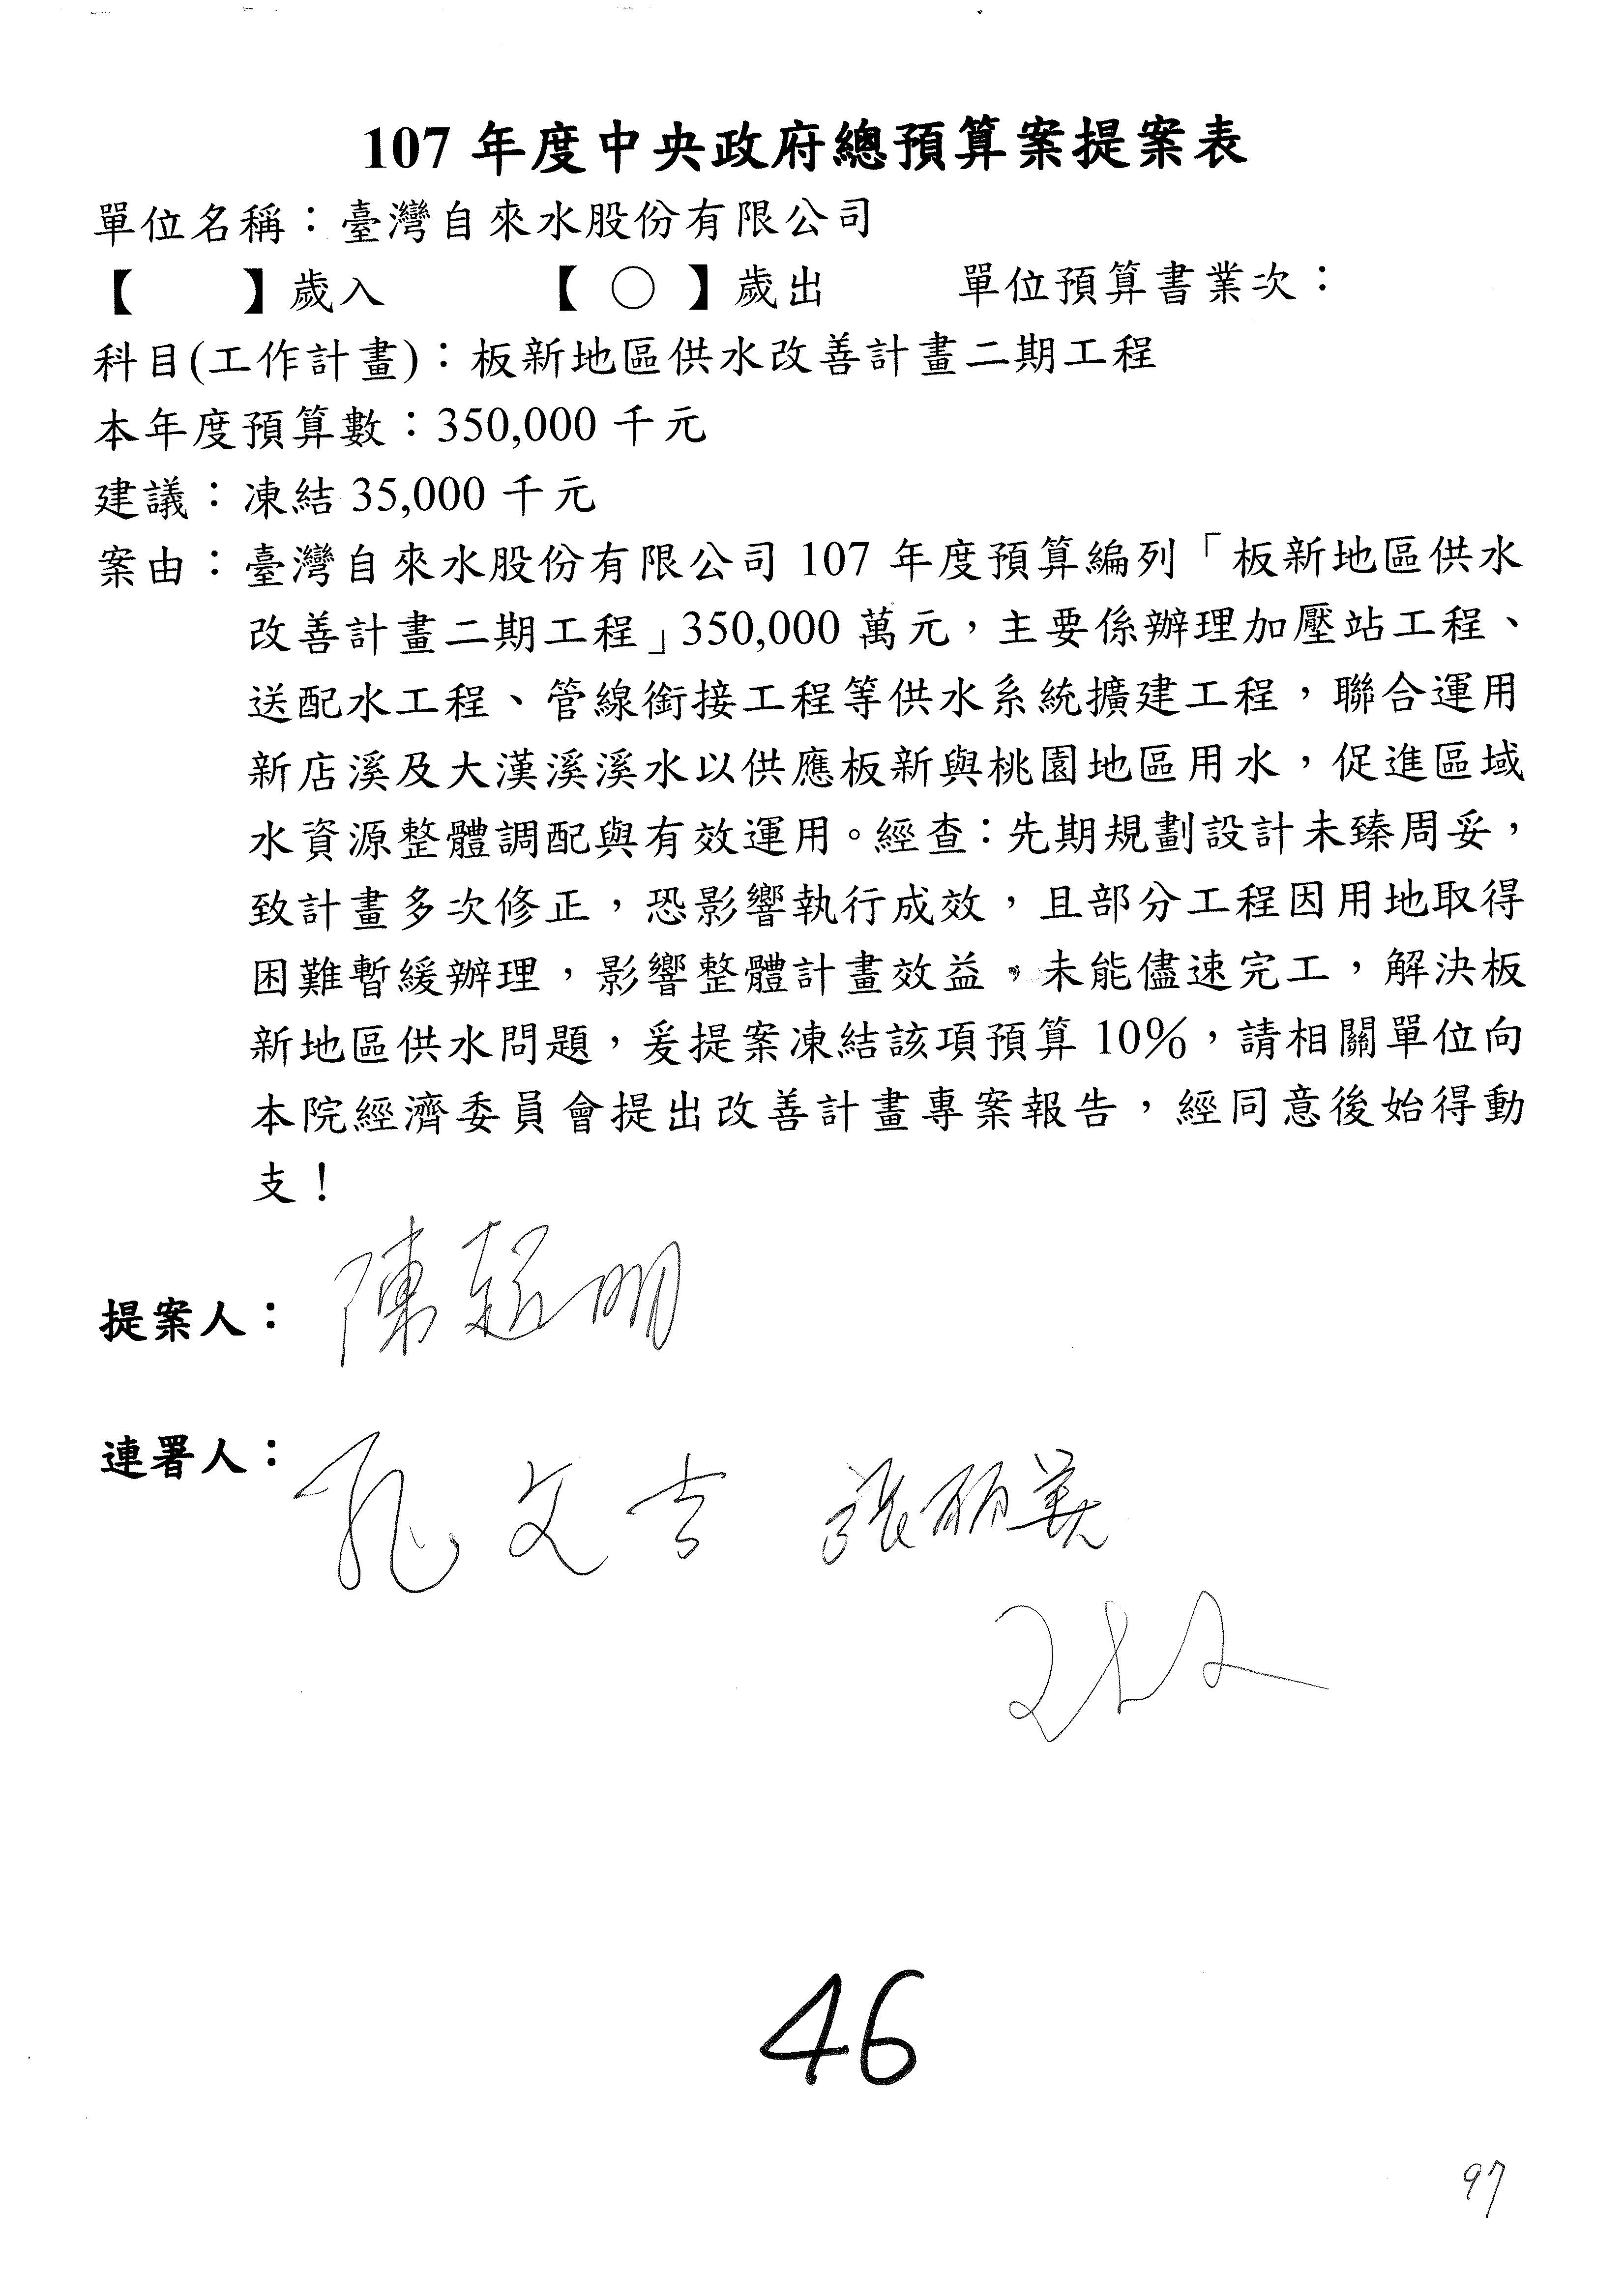 107 年度中央政府總預算案提案表
單位名稱：臺灣自來水股份有限公司
【　　】歲入　　　【 ○ 】歲出　　　單位預算書業次：
科目(工作計畫)：板新地區供水改善計畫二期工程
本年度預算數：350,000 千元
建議：凍結 35,000 千元
案由：臺灣自來水股份有限公司 107 年度預算編列「板新地區供水
改善計畫二期工程」350,000 萬元，主要係辦理加壓站工程、
送配水工程、管線銜接工程等供水系統擴建工程，聯合運用
新店溪及大漢溪溪水以供應板新與桃園地區用水，促進區域
水資源整體調配與有效運用。經查：先期規劃設計未臻周妥，
致計畫多次修正，恐影響執行成效，且部分工程因用地取得
困難暫緩辦理，影響整體計畫效益，未能儘速完工，解決板
新地區供水問題，爰提案凍結該項預算 10%，請相關單位向
本院經濟委員會提出改善計畫專案報告，經同意後始得動
支！
提案人：陳超明
連署人：孔文吉 張麗善
46
97